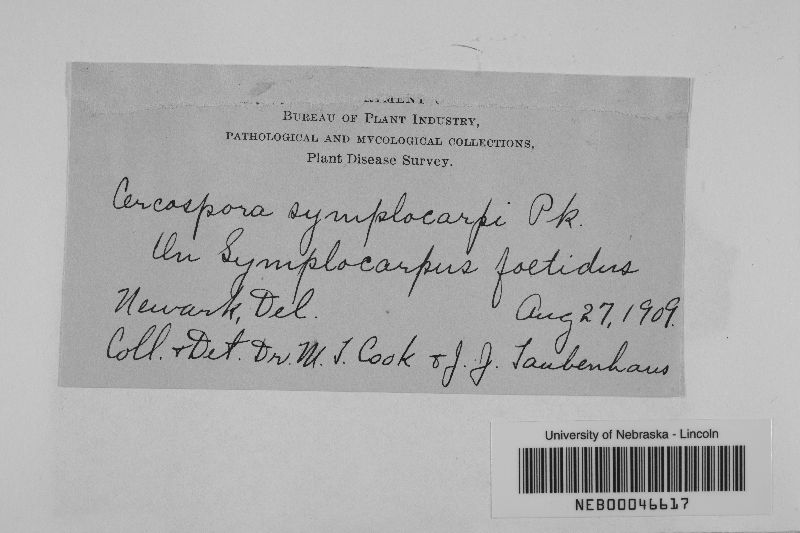 BUREAU OF PLANT INDUSTRY,
PATHOLOGICAL AND MYCOLOGICAL COLLECTIONS,
Plant Disease Survey.
Cercospora symplocarpi Pk.
On Symplocarpus foetidus
Newark, Del. Aug 27, 1909.
Coll. & Det. Dr. M. T. Cook & J. J. Taubenhaus
University of Nebraska - Lincoln
NEB00046617